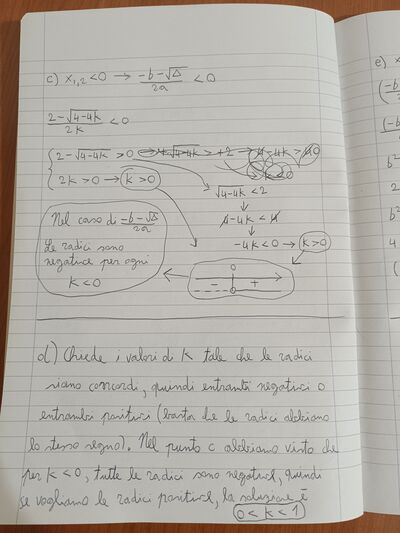 c) x₁,₂ < 0 → (-b - √Δ)/2a < 0
(2 - √(4-4k))/2k < 0
{ 2 - √(4-4k) > 0
√(4-4k) < 2
2k > 0 → k > 0
4 - 4k < 4
-4k < 0 → k > 0
Nel caso di (-b - √Δ)/2a
Le radici sono
negative per ogni
k < 0
0
- +
d) Chiede i valori di k tale che le radici
siano concordi, quindi entrambi negativi o
entrambi positivi (basta che le radici abbiano
lo stesso segno). Nel punto c abbiamo visto che
per k < 0, tutte le radici sono negative, quindi
se vogliamo le radici positive, la soluzione è
0 < k < 1
e) x
(-b
(-b
b²
2
b²
4